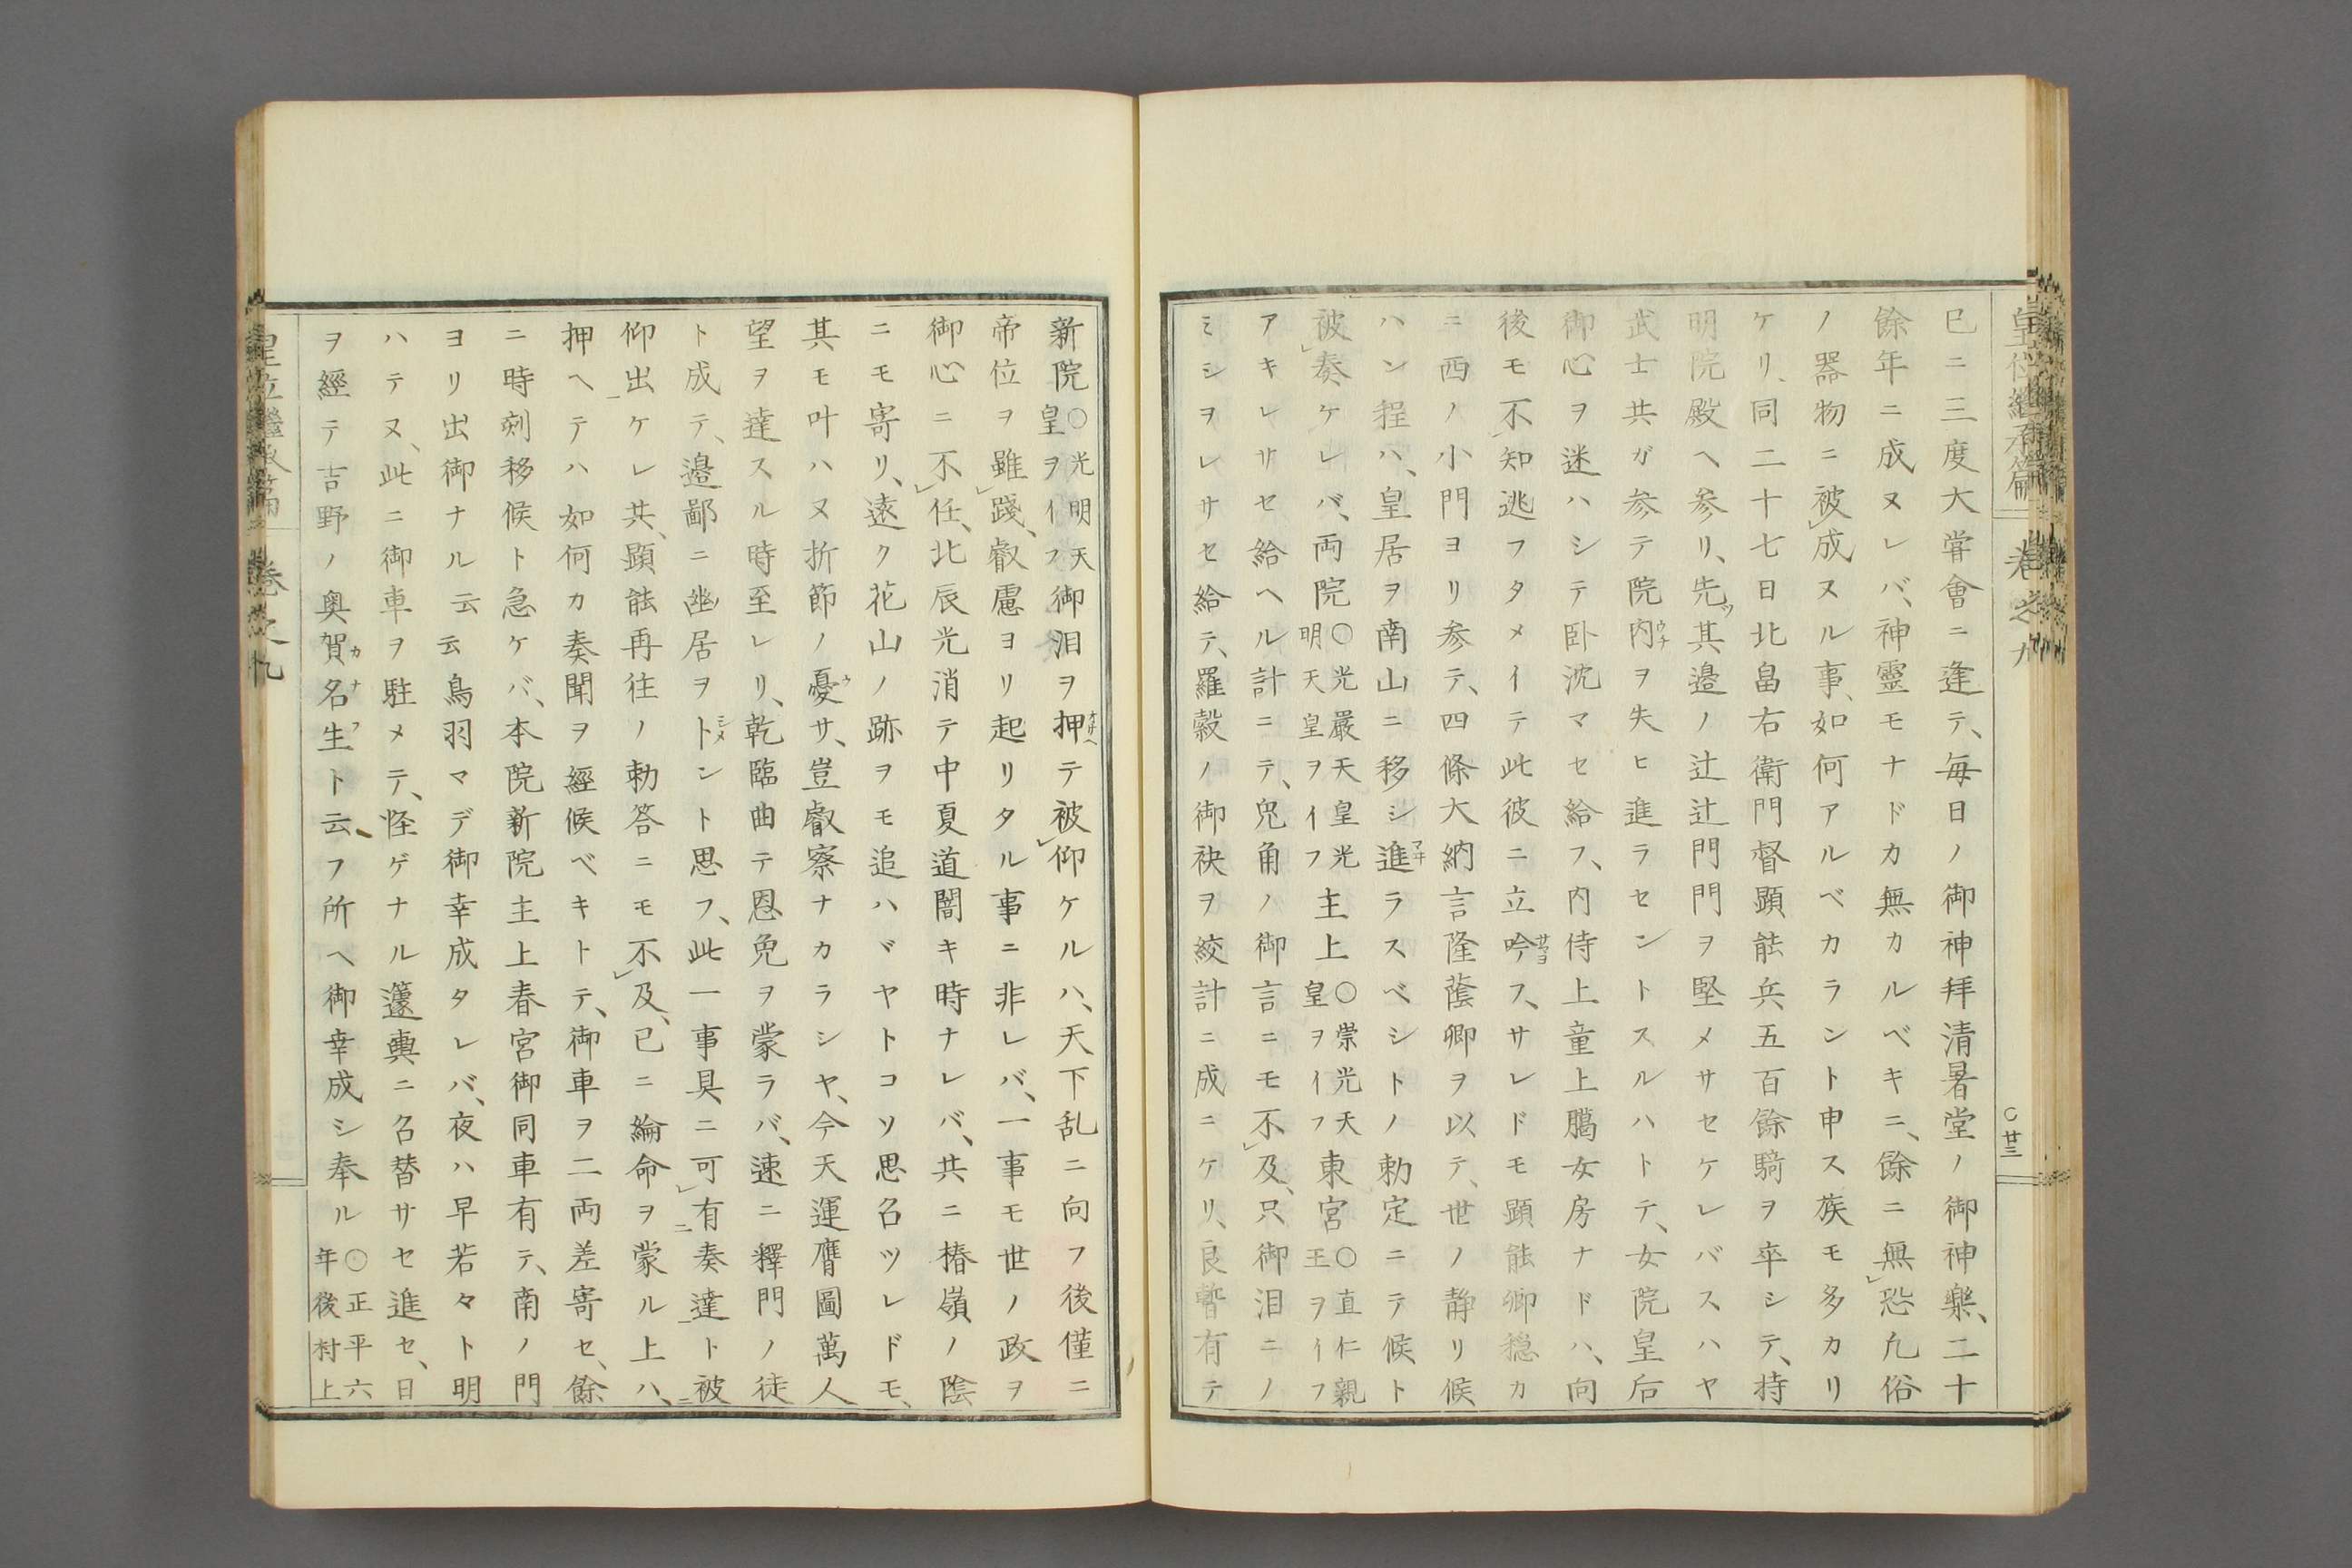 皇位繼承篇 卷之九
〇廿三
巳ニ三度大甞會ニ逢テ、毎日ノ御神拜清暑堂ノ御神樂、二十
餘年ニ成ヌレバ、神靈モナドカ無カルベキニ、餘ニ無レ恐凢俗
ノ器物ニ被レ成ヌル事、如何アルベカラント申ス族モ多カリ
ケリ、同二十七日北畠右衛門督顕能兵五百餘騎ヲ卒シテ、持
明院殿ヘ参リ、先ヅ其邉ノ辻辻門門ヲ堅メサセケレバスハヤ
武士共ガ参テ院内ウチヲ失ヒ進ラセントスルハトテ、女院皇后
御心ヲ迷ハシテ卧沈マセ給フ、内侍上童上臈女房ナドハ、向
後モ不レ知逃フタメイテ此彼ニ立吟サマヨフ、サレドモ顕能卿穏カ
ニ西ノ小門ヨリ参テ、四條大納言隆蔭卿ヲ以テ、世ノ静リ候
ハン程ハ、皇居ヲ南山ニ移シ進マヰラスベシトノ勅定ニテ候ト
被レ奏ケレバ、両院〇光嚴天皇光明天皇ヲイフ主上〇崇光天皇ヲイフ東宮〇直仁親王ヲイフ
アキレサセ給ヘル計ニテ、兎角ノ御言ニモ不レ及、只御泪ニノ
ミシヲレサセ給テ、羅穀ノ御袂ヲ絞計ニ成ニケリ、良暫有テ
新院〇光明天皇ヲイフ御泪ヲ押オサヘテ被レ仰ケルハ、天下乱ニ向フ後僅ニ
帝位ヲ雖レ踐、叡慮ヨリ起リタル事ニ非レバ、一事モ世ノ政ヲ
御心ニ不レ任、北辰光消テ中夏道闇キ時ナレバ、共ニ椿嶺ノ陰
ニモ寄リ、遠ク花山ノ跡ヲモ追ハバヤトコソ思召ツレドモ、
其モ叶ハヌ折節ノ憂ウサ、豈叡察ナカラシヤ、今天運膺圖萬人
望ヲ達スル時至レリ、乾臨曲テ恩免ヲ蒙ラバ、速ニ釋門ノ徒
ト成テ、邉鄙ニ幽居ヲトシメント思フ、此一事具ニ可レ有二奏達一ト被二
仰出一ケレ共、顕能再往ノ勅答ニモ不レ及、已ニ綸命ヲ蒙ル上ハ、
押ヘテハ如何カ奏聞ヲ經候ベキトテ、御車ヲ二両差寄セ、餘
ニ時刻移候ト急ケバ、本院新院主上春宮御同車有テ、南ノ門
ヨリ出御ナル云云鳥羽マデ御幸成タレバ、夜ハ早若々ト明
ハテヌ、此ニ御車ヲ駐メテ、怪ゲナル籧輿ニ召替サセ進セ、日
ヲ經テ吉野ノ奥賀カ名ナ生フト云フ所ヘ御幸成シ奉ル〇正平六年後村上
皇位繼承篇 卷之九